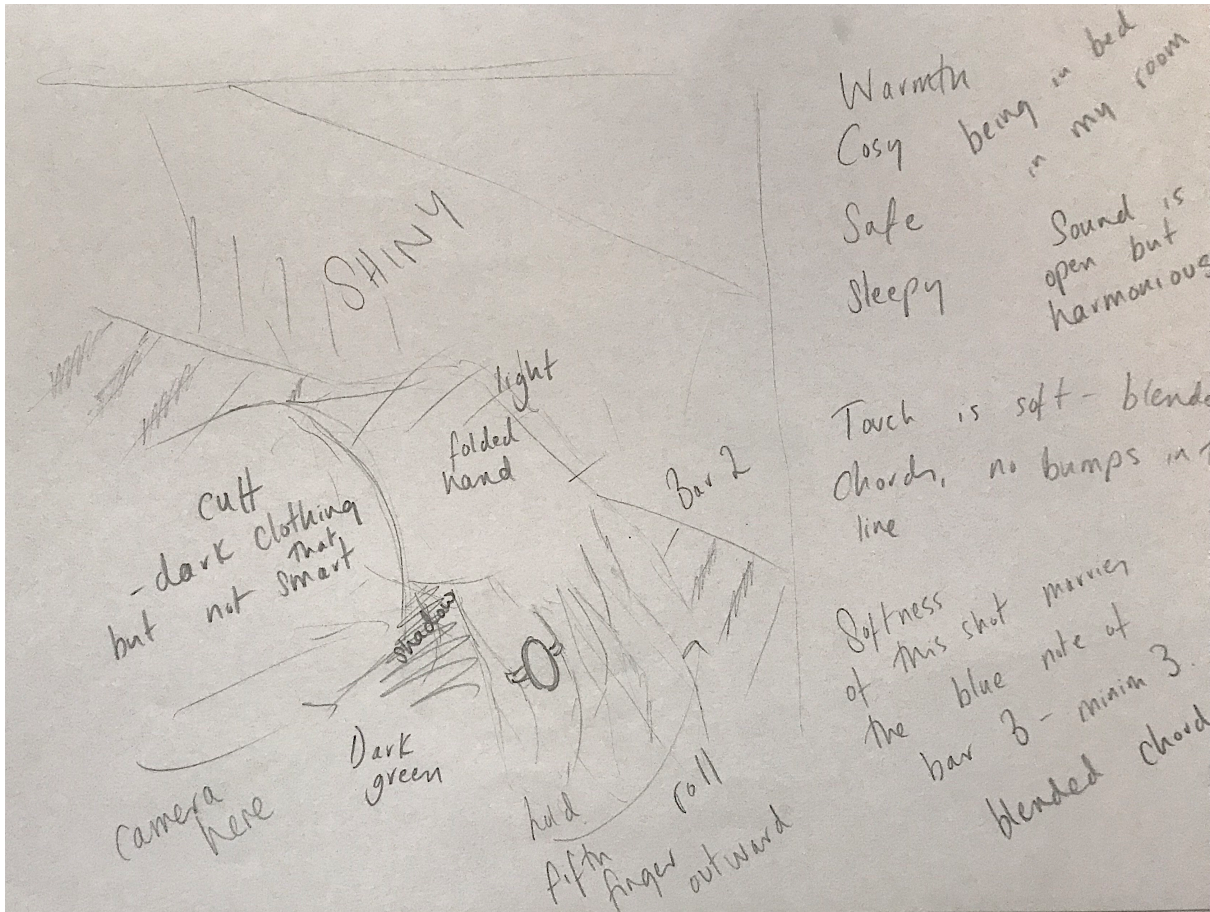 SHINY
light
folded
hand
Bar 2
cuff
- dark clothing
that
but not smart
shadow
Dark
green
camera
here
hold
fifth
finger
roll
outward
Warmth
Cosy being in bed
in my room
Safe
Sleepy
Sound is
open but
harmonious
Touch is soft - blende
Chords, no bumps in T
line
Softness
of this shot marries
the blue note of
bar 3 - minim 3.
blended chord